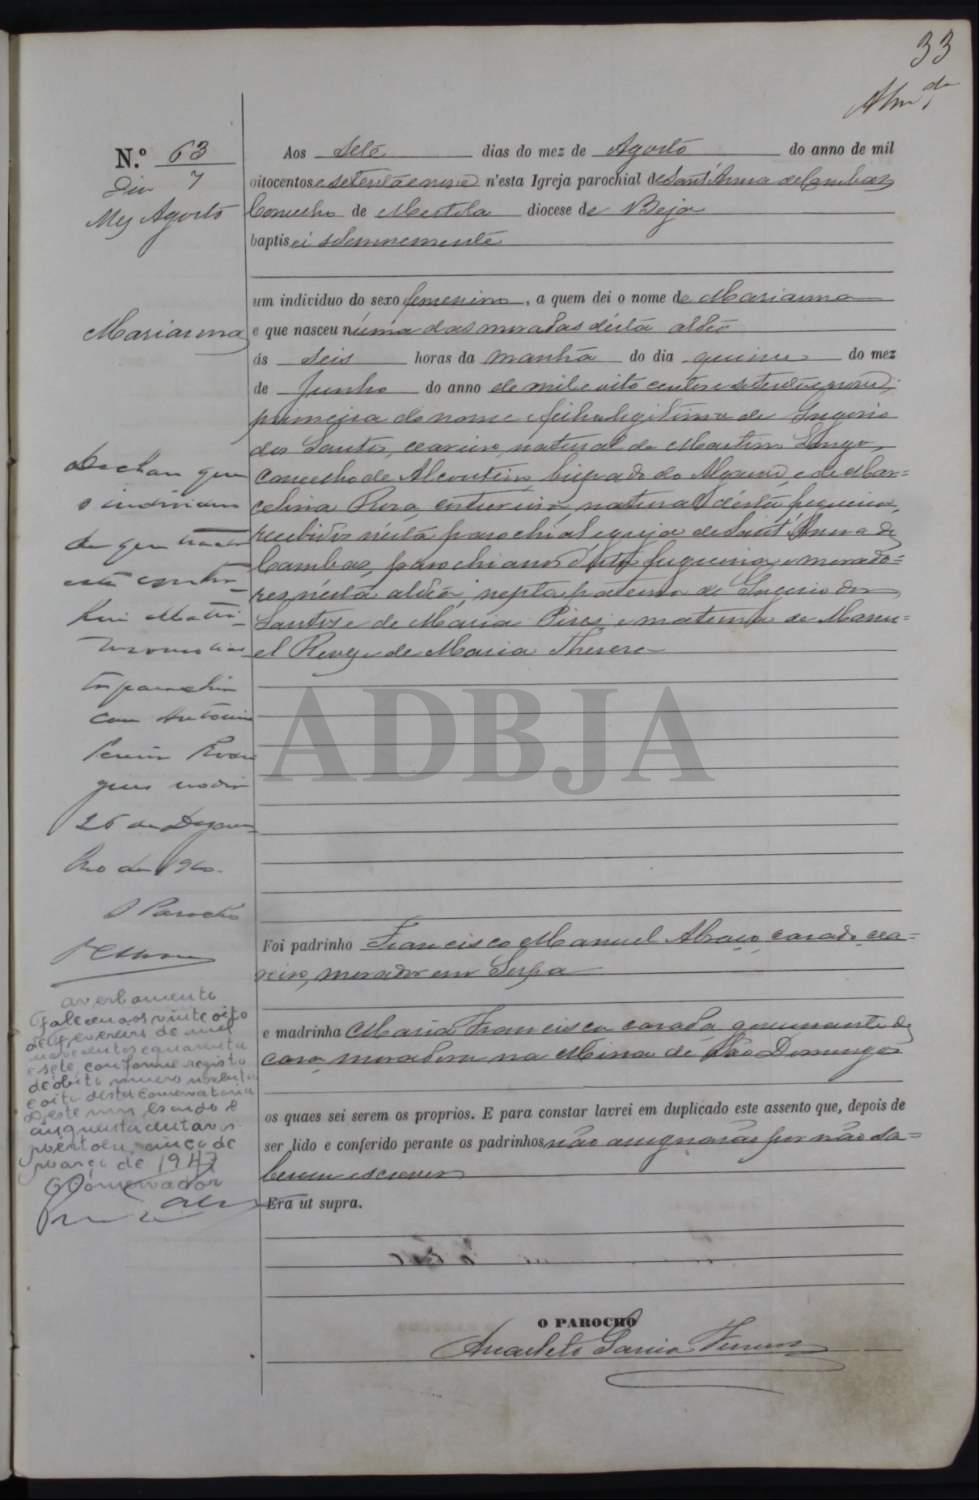 33
N.º 63
Dia 7
Mez Agosto
Marianna
Aos sete dias do mez de Agosto do anno de mil
oitocentos e setenta e nove n'esta Igreja parochial de Sant'Anna de Cambas
Concelho de Mertola diocese de Beja
baptisei solemnemente
um individuo do sexo femenino, a quem dei o nome de Marianna
e que nasceu n'uma das moradas d'esta aldêa
ás seis horas da manhã do dia quinze do mez
de Junho do anno de mil e oito centos e setenta e nove,
primeira do nome e filha legitima de Gregorio
dos Santos, ceareiro, natural de Martim Longo,
concelho de Alcoutim, bispado do Algarve, e de Mar=
celina Rosa, natural d'esta freguezia,
recebidos n'esta parochial egreja de Sant'Anna de
Cambas, parochianos d'esta freguezia, e morado=
res n'esta aldêa, nepta paterna de Gregorio dos
Santos e de Maria Pires, e materna de Manu=
el Revez e de Maria Thereza
ADBJA
Declaro que
o individuo
de que trata
esta
Matri-
monio
parochia
com Antonio
no dia
26 de Dezem
bro de
O Parocho
Foi padrinho Francisco Manuel, casado, cea=
reiro, morador em Serpa
e madrinha Maria Francisca casada, governante de
casa, moradora na Mina de São Domingos
averbamento
Faleceu aos vinte oito
de fevereiro de mil
novecentos e quarenta
e sete, conforme registo
de obito numero noventa
e oito desta Conservatoria
Deste um escudo e
cinquenta centavos
Mértola, cinco de
março de 1947
O Conservador
os quaes sei serem os proprios. E para constar lavrei em duplicado este assento que, depois de
ser lido e conferido perante os padrinhos não assignarão por não sa=
berem escrever
Era ut supra.
O PAROCHO
Anacleto Garcia